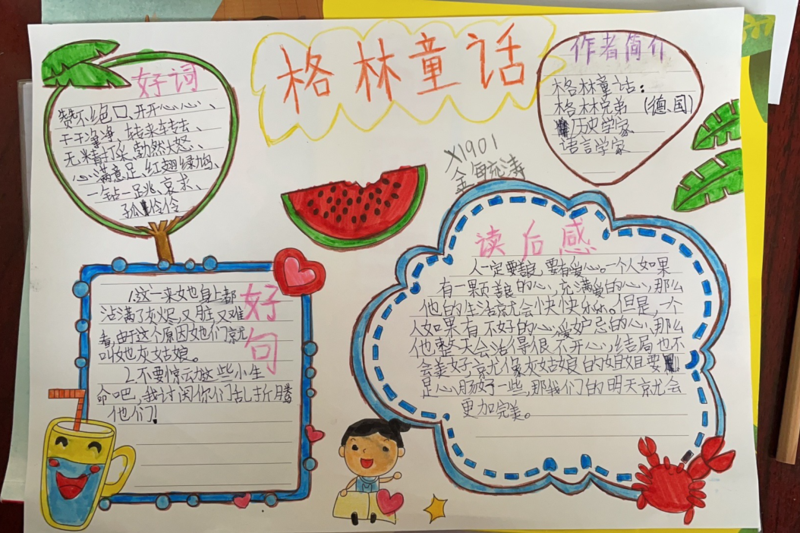 格林童话
好词
赞不绝口、开开心心、
干干净净、转来转去、
无精打采、勃然大怒、
心满意足、红翅绿鸠、
一钻一跳、哀求、
孤伶伶
作者简介
格林童话:
格林兄弟 (德国)
历史学家
语言学家
X1901
好句
1.这一来她身上都
沾满了灰尘,又脏,又难
看,由于这个原因她们就
叫她灰姑娘。
2.不要惊动这些小生
命吧,我讨厌你们乱折腾
他们!
读后感
人一定要善良,要有爱心。一个人如果
有一颗善良的心,充满爱的心,那么
他的生活就会快快乐乐。但是,一个
人如果有不好的心,妒忌的心,那么
他整天会活得很不开心,结局也不
会美好,就像灰姑娘的姐姐,要
是心肠好一些,那我们的明天就会
更加完美。